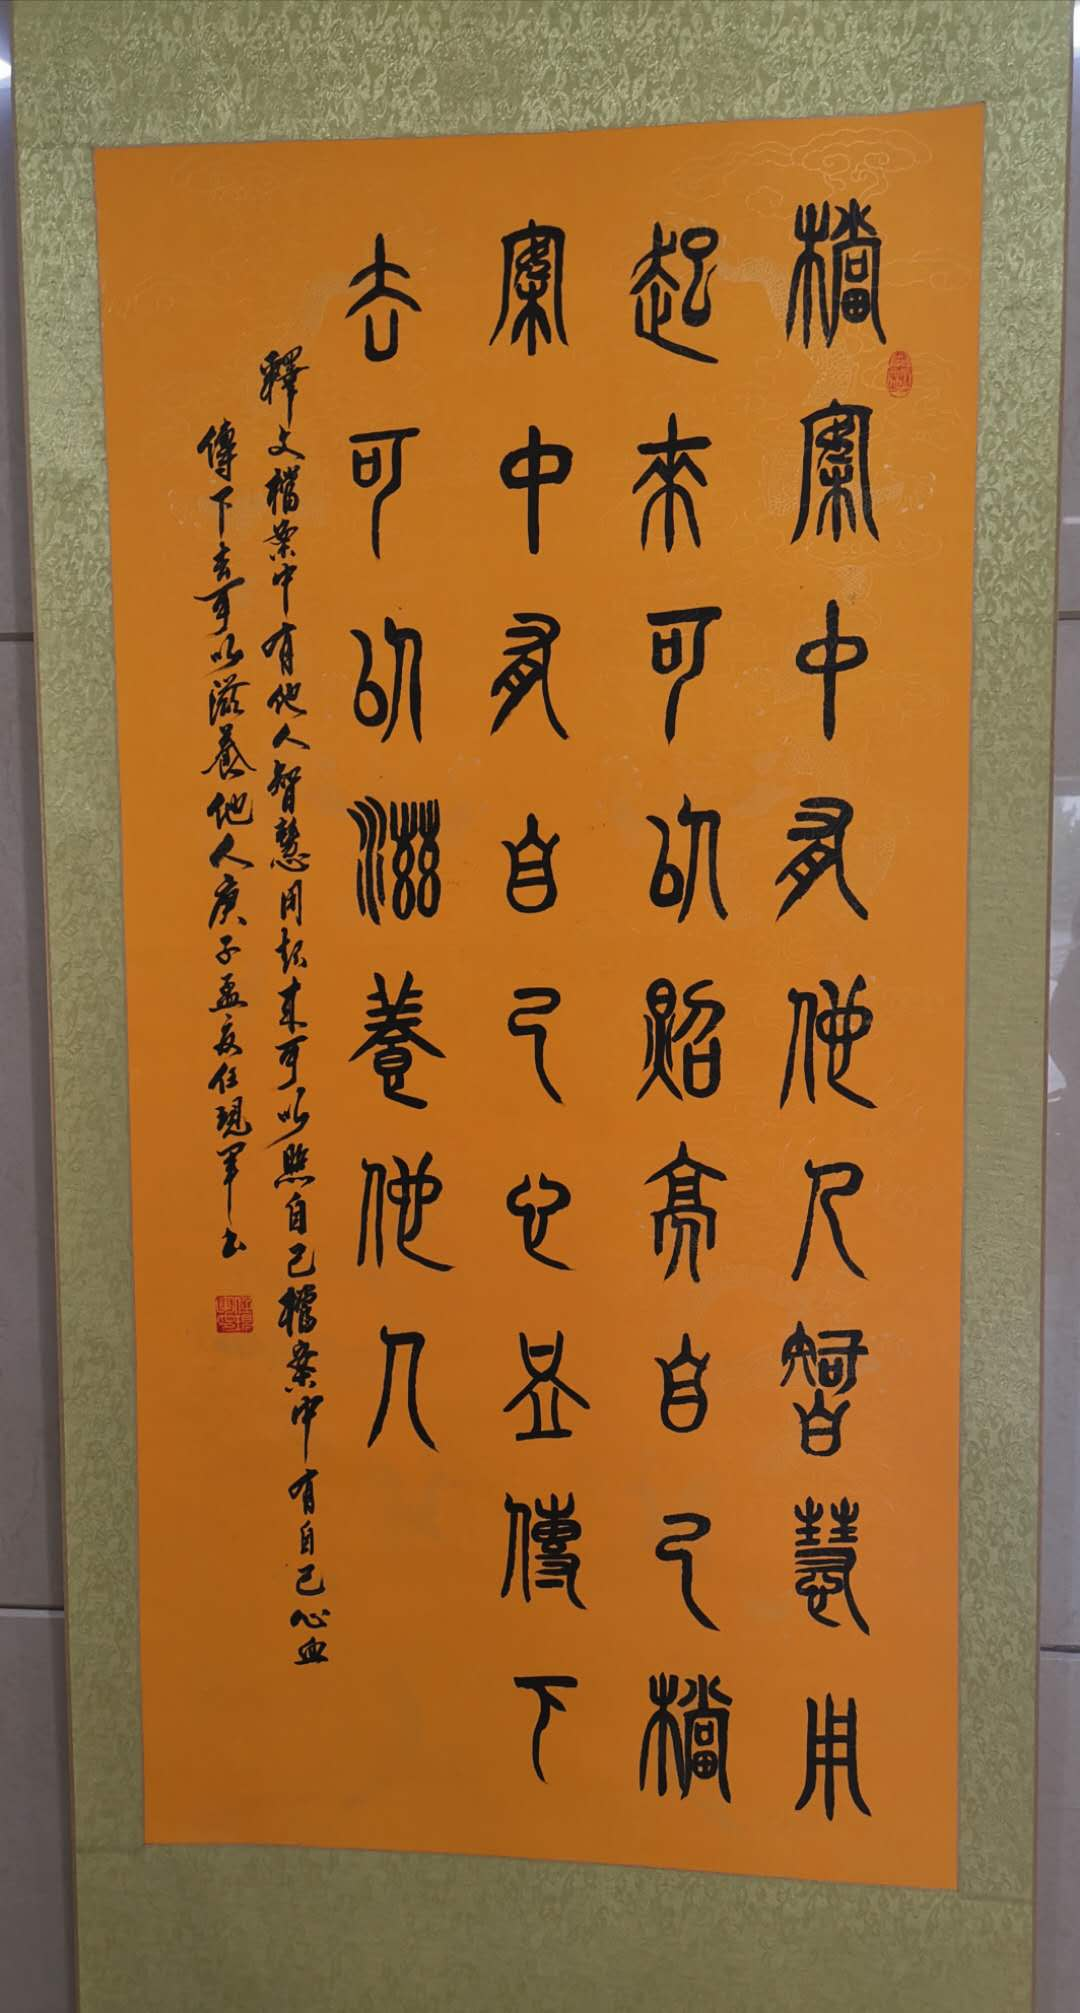 檔案中有他人智慧用
起來可以照亮自己檔
案中有自己心血傳下
去可以滋養他人
釋文檔案中有他人智慧用起来可以照自己檔案中有自己心血
傳下去可以滋養他人庚子孟夏任現軍书